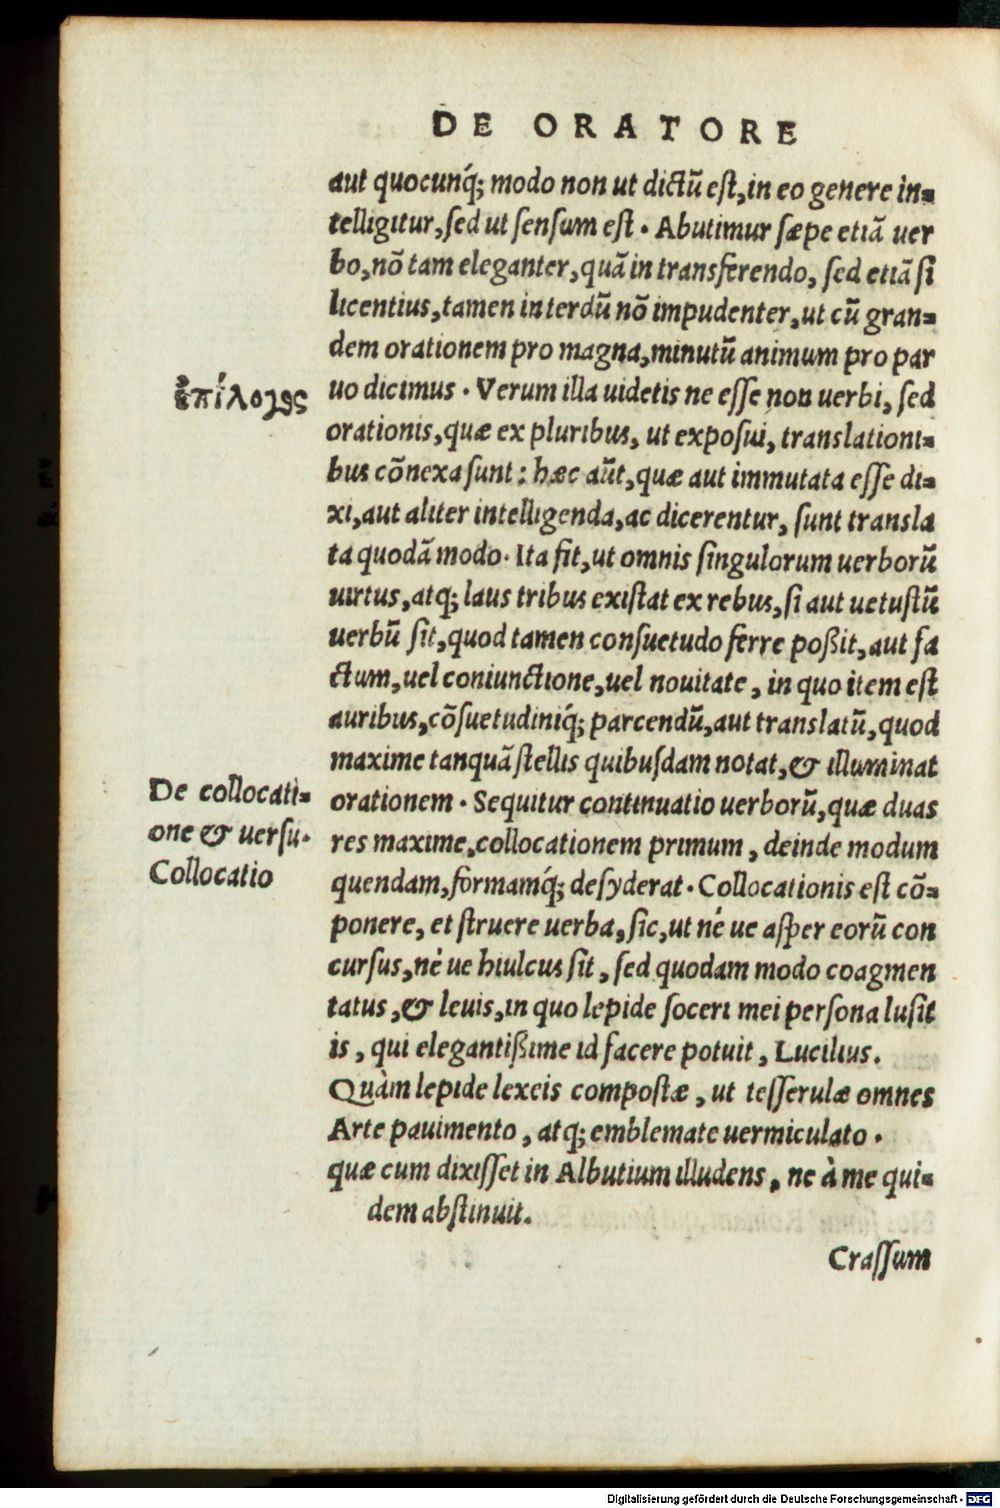 DE ORATORE
aut quocunq́; modo non ut dictũ est, in eo genere in-
telligitur, sed ut sensum est. Abutimur sæpe etiã uer
bo, nõ tam eleganter, quã in transferendo, sed etiã si
licentius, tamen interdũ nõ impudenter, ut cũ gran-
dem orationem pro magna, minutũ animum pro par
uo dicimus. Verum illa uidetis ne esse non uerbi, sed
ἐπίλογος
orationis, quæ ex pluribus, ut exposui, translationi-
bus cõnexa sunt: hæc aũt, quæ aut immutata esse di-
xi, aut aliter intelligenda, ac dicerentur, sunt transla
ta quodã modo. Ita fit, ut omnis singulorum uerborũ
uirtus, atq; laus tribus existat ex rebus, si aut uetustũ
uerbũ sit, quod tamen consuetudo ferre poßit, aut fa
ctum, uel coniunctione, uel nouitate, in quo item est
auribus, cõsuetudiniq́; parcendũ, aut translatũ, quod
maxime tanquã stellis quibusdam notat, & illuminat
De collocati-
one & uersu.
Collocatio
orationem. Sequitur continuatio uerborũ, quæ duas
res maxime, collocationem primum, deinde modum
quendam, formamq́; desyderat. Collocationis est cõ-
ponere, et struere uerba, sic, ut né ue asper eorũ con
cursus, né ue hiulcus sit, sed quodam modo coagmen
tatus, & leuis, in quo lepide soceri mei persona lusit
is, qui elegantißime id facere potuit, Lucilius.
Quàm lepide lexeis compostæ, ut tesserulæ omnes
Arte pauimento, atq; emblemate uermiculato.
quæ cum dixisset in Albutium illudens, ne à me qui-
dem abstinuit.
Crassum
Digitalisierung gefördert durch die Deutsche Forschungsgemeinschaft - DFG